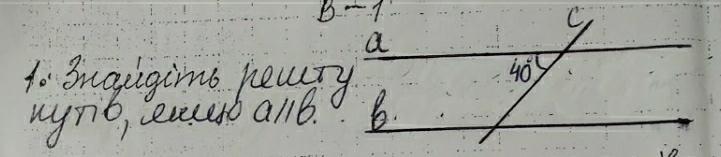 В-1
1. Знайдіть решту
кутів, якщо a||b.
a
40°
c
b